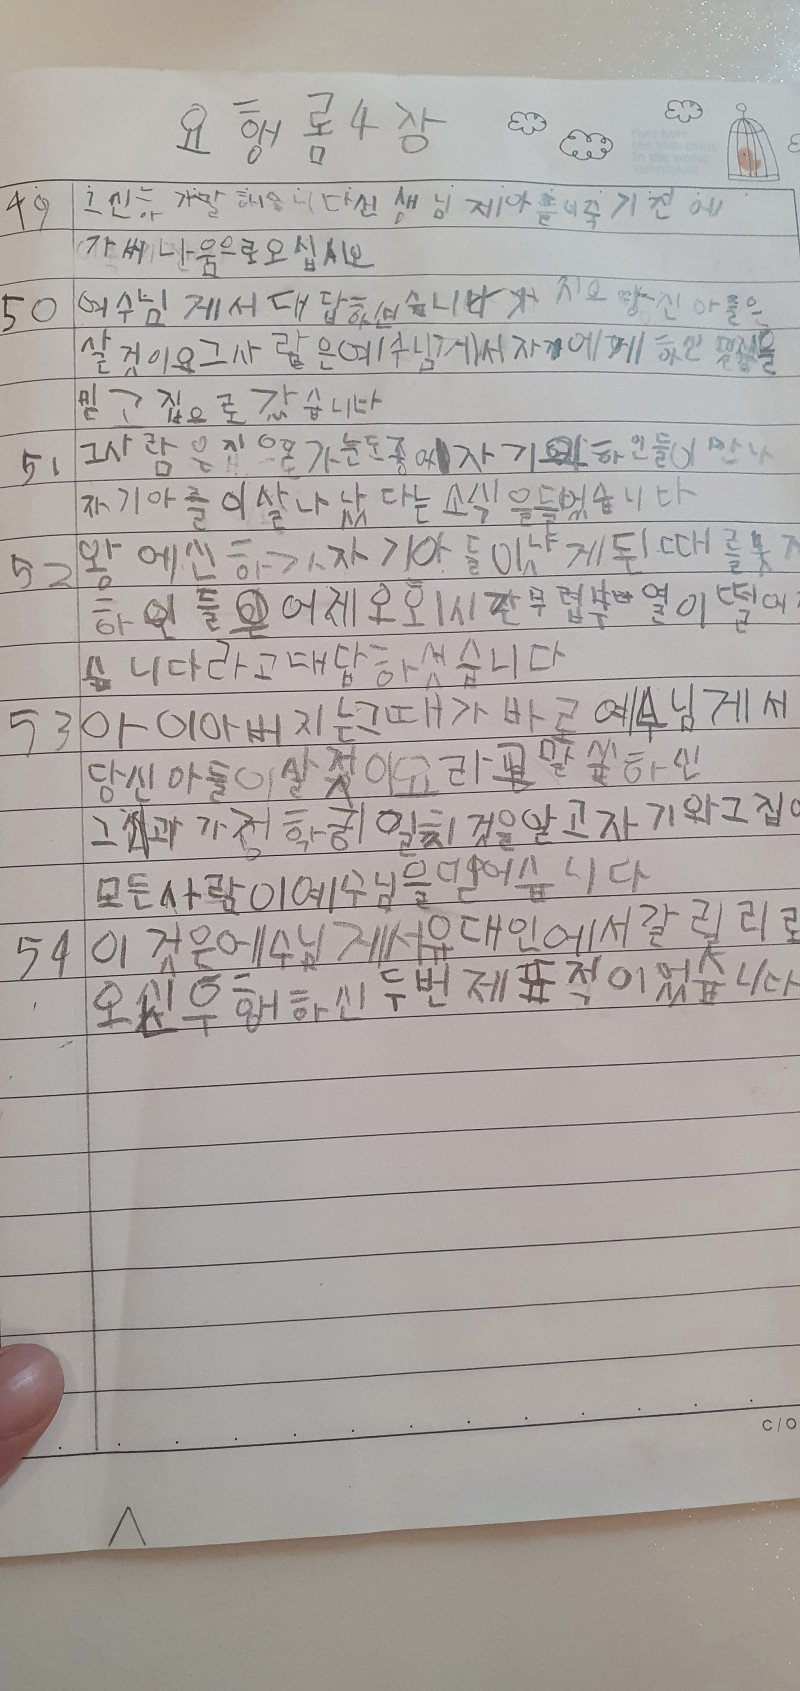 요 행 롬 4 장
49 그신하 가말 하습니다선 생 님 제아들 죽 기 전 에
가 나 움으로오 십시오
50 예수님 께서 대 답하 습니다 지오 당신 아 들은
살 것이요그사 람 은예수님께서자기에게 하신 을
믿 고 집으 로 갔 습니다
51 그사 람 은집 으로 가는도중에 자 기 하 인들이 만나
자기아 들 이살 나 났 다는 소식 을들었습니 다
52 왕 에신 하가자 기아 들이낳 게된 때 를 묻
하 인 들 은 어제오호1시 무렵부 열 이 떨어
습 니다라고대답하 셨습니다
53 아 이아버 지는그때가 바 로 예수님 게 서
당신 아들이 살 것 이요 라고 말 씀 하 신
그 과 가 정 확 히 일 치 것을 알 고 자 기 와그 집
모든사 람 이예수님을 믿 어습 니 다
54 이 것 은예수님 께서유 대인에서갈 릴 리 로
오신 후 행 하 신 두 번 째 표 적 이 었 습 니다
C/O